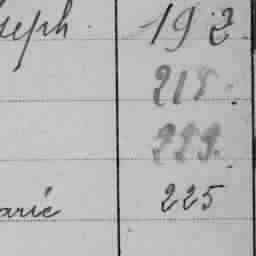 seph. 192.
218.
222.
arie 225